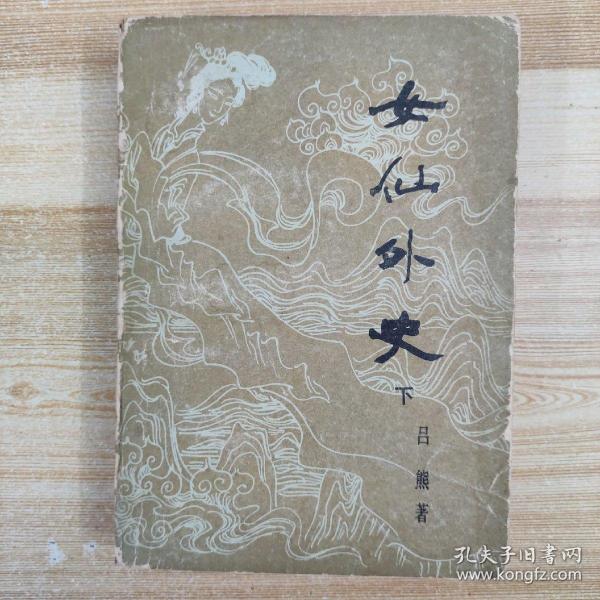 女仙外史
下
吕熊著
孔夫子旧书网
www.kongfz.com